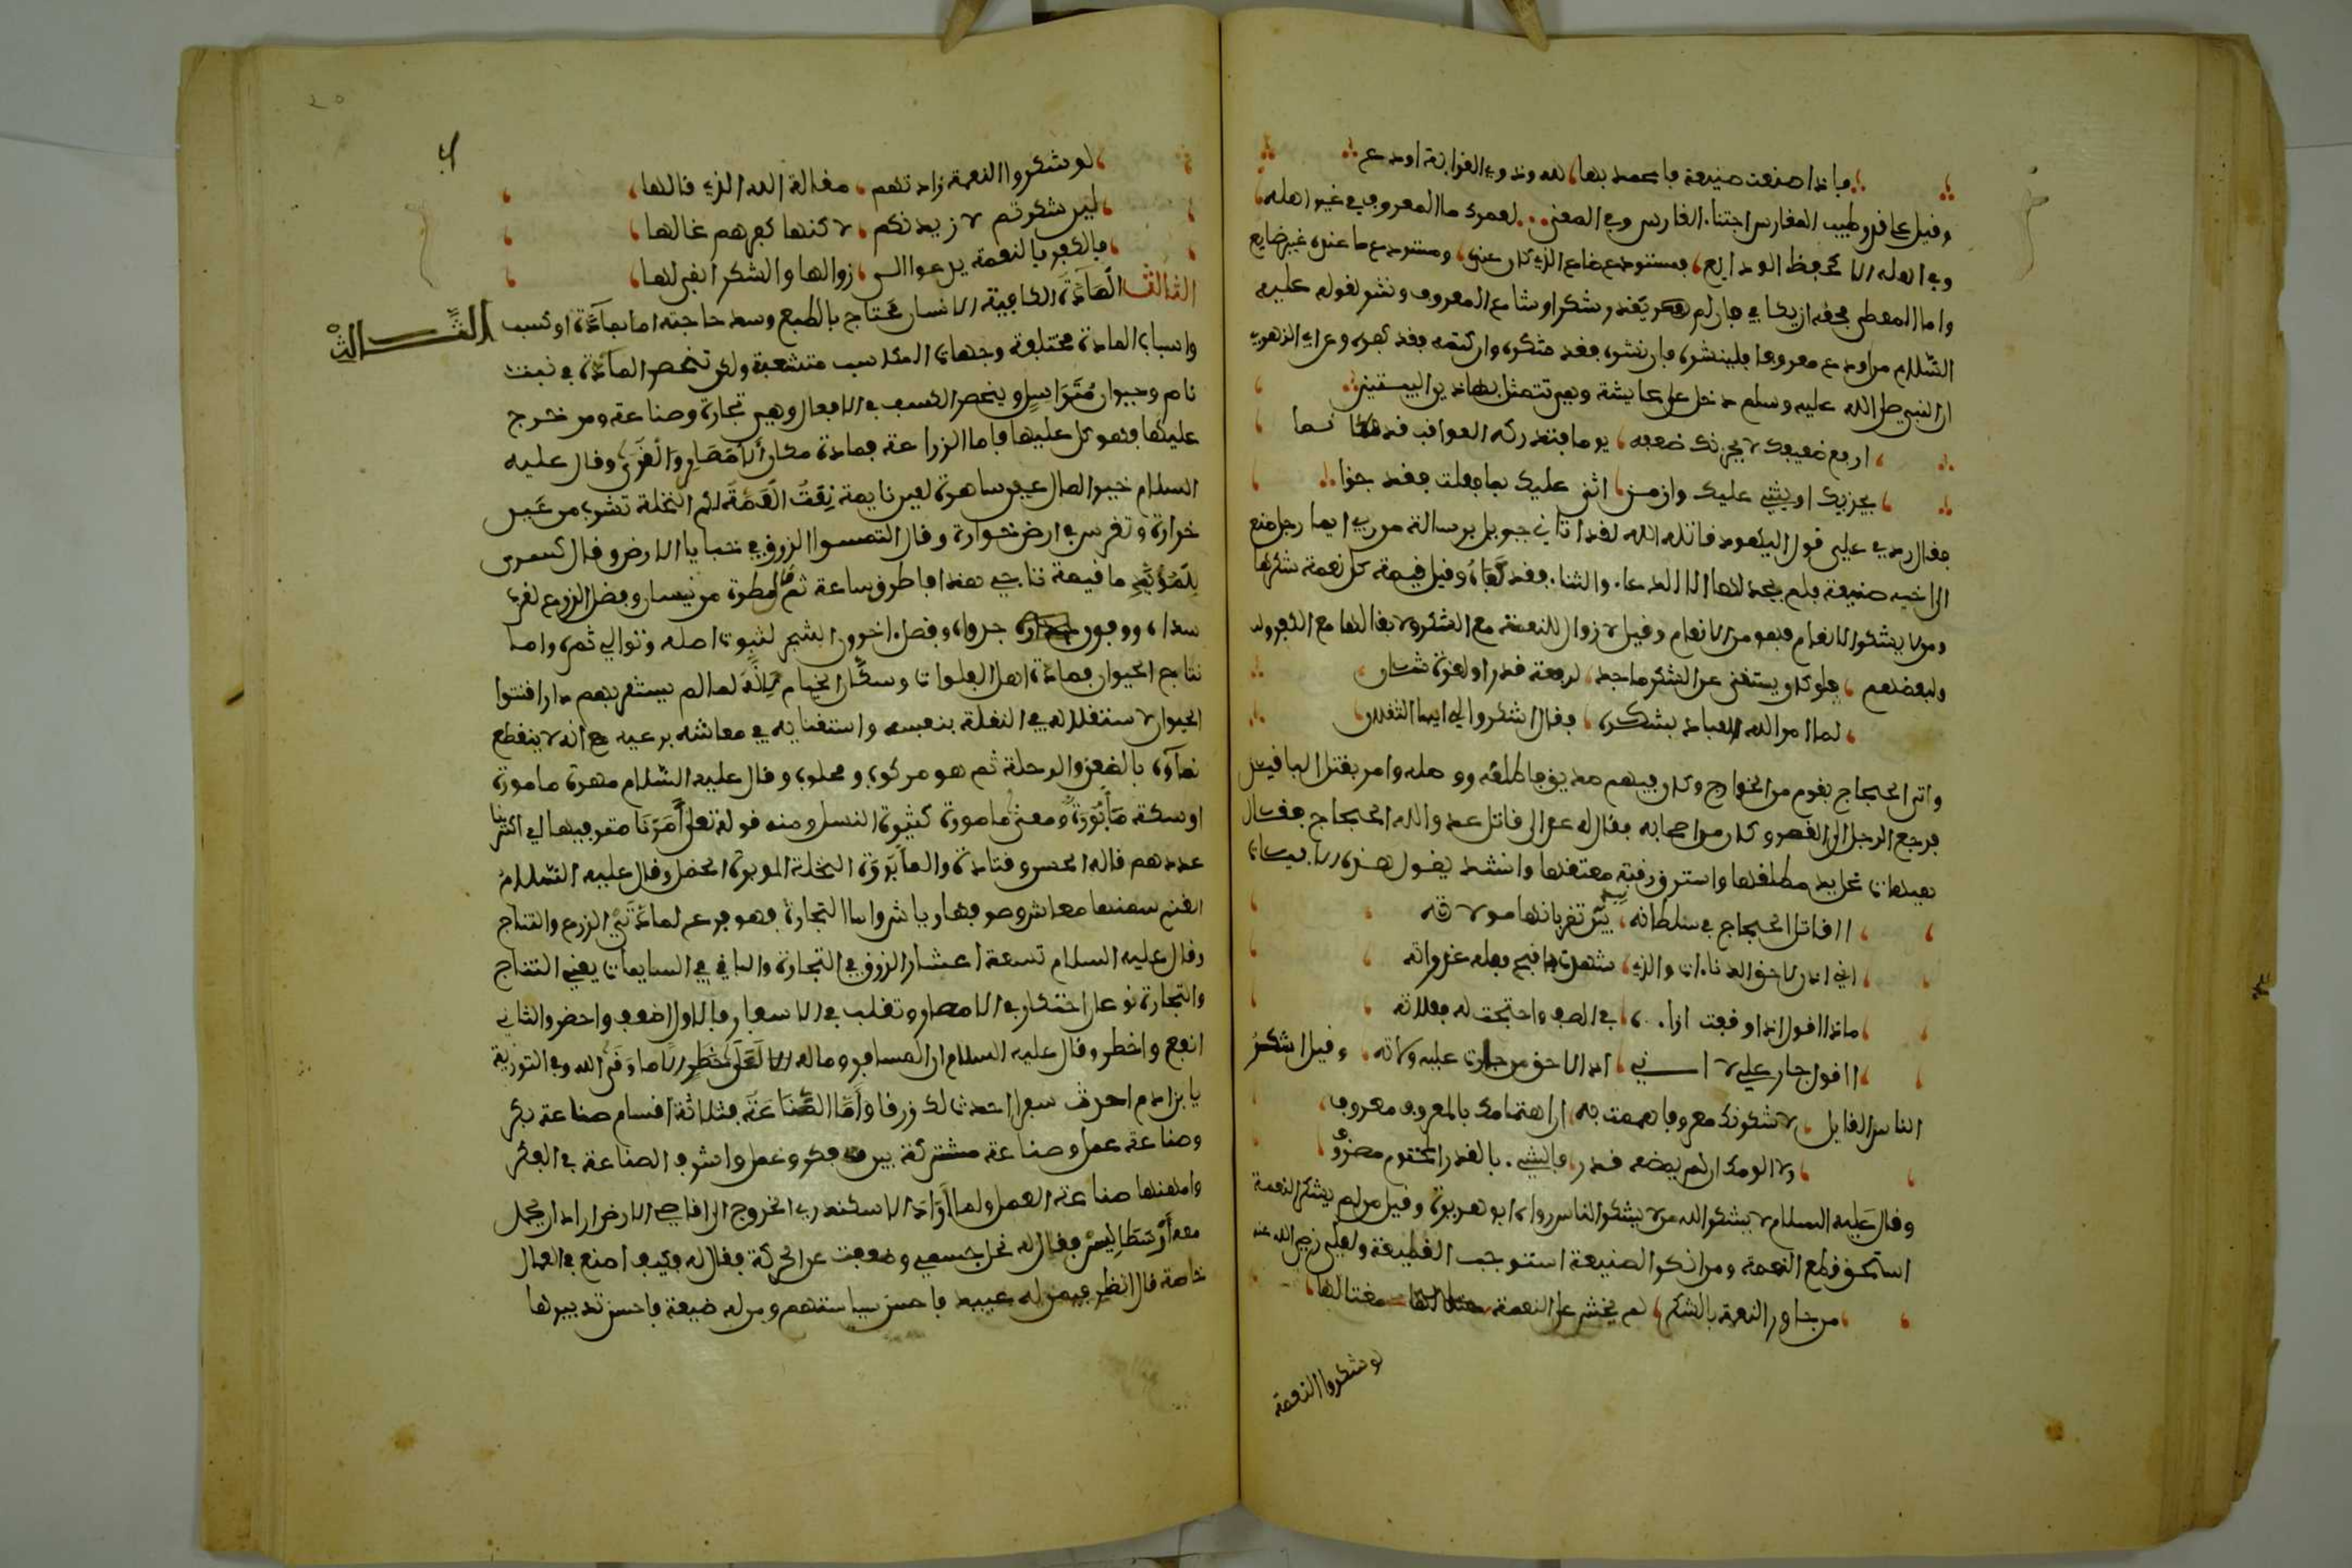 فإذا صنعت صنيعة فاعمد بها لله وذوي القرابة او دع
وفيل على فدر طيب المغارس اجتناء الغارس وفي المعنى لعمرك ما المعروف في غير اهله
وفي اهله الا كبعض الودايع فمستودع ضاع الذي كان عنده ومستودع ما عنده غير ضايع
واما المعطى فحفه ان يكافي فان لم يفدر شكر او شاع المعروف ونشر لفوله عليه
السّلام من اودع معروفا فلينشره فان نشره ففد شكره وان كتمه ففد كفره وعن الزهري
ان النبي صلى الله عليه وسلم دخل على عايشة وهي تتمثل بهاذين البيتين
ارفع ضعيفك لا يحزنك ضعفه يوما فتدركه العوافب فد نما
يجزيك او يثني عليك وان من اثنى عليك بما فعلت ففد جزا
ففال ردي علي فول اليهودي فاتله الله لفد اتاني جبريل برسالة من ربي ايما رجل صنع
الى اخيه صنيعة فلم يجد لها الا الدعاء والثناء ففد كَافَاهُ وفيل فيمة كل نعمة شكرها
ومن لا يشكر الانعام فهو من الانعام وفيل لا زوال للنعمة مع الشكر ولا بفا لها مع الكفر وله
ولبعضهم فلو كان يستغني عن الشكر ماجد لرفعة فدر او لعزة شان
لما امر الله العباد بشكره ففال اشكروا لي ايها الثفلان
واتى الحجاج بفوم من الخوارج وكان فيهم صديق فاطلفه ووصله وامر بفتل البافين
فرجع الرجل الى الفصر وكان من اصحابه ففال له عد الى فتال عدو الله الحجاج ففال
هيهات غل يد مطلفها واسترق رفبة معتفها وانشد يفول هذه الابيات
اافاتل الحجاج في سلطانه بيد تفر بانها مولاته
اني اذن لاخو الدناءة والذي شهدت بافبح فعله غدراته
ماذا افول اذا وفعت ازاءه في الصف واحتجت له فعلاته
اافول جار علي لا اني اذن لاحق من جارت عليه ولاته وفيل اشكر
الناس الفايل لاشكرنك معروفا هممت به ان اهتمامك بالمعروف معروف
ولا الومك ان لم يمضه فدر فالشيء بالفدر المحتوم مصروف
وفال عليه السلام لا يشكر الله من لا يشكر الناس رواه ابو هريرة وفيل من لم يشكر النعمة
استحق فطع النعمة ومن انكر الصنيعة استوجب الفطيعة ولعلي رضي الله عنه
من جاور النعمة بالشكر لم يخش على النعمة مغتالها
لو شكروا النعمة
لو شكروا النعمة زادتهم مفالة الله الذي فالها
لين شكرتم لازيدنكم لاكنما كفرهم غالها
فالكفر بالنعمة يدعو الى زوالها والشكر ابفى لها
الثالث المَادَّة الكافية الانسان محتاج بالطبع وسد حاجته اما بمآدّة او كسب
الثـالث
واسباب المادة مختلفة وجهات المكاسب متشعبة ولكن تنحصر المآدّة في نبت
نام وحيوان مُتَرَاسِل وينحصر الكسب في الافعال وهي تجارة وصناعة ومن خرج
عليها فهو كل عليها فاما الزراعة فمادة سكان الأمصَار وَالفُرَى وفال عليه
السلام خير المال عين ساهرة لعين نايمة نِعمَت العَمَّة لكم النخلة تشرب من عين
خرارة وتغرس في ارض خوارة وفال التمسوا الرزق في خبايا الارض وفال كسرى
لِلمُوبَذِ ما فيمة تاجي هذا فاطرق ساعة ثم فال مطرة من نيسان وفضل الزرع لفرب
مداه ووفور جدواه وفضل اخرون الشجر لثبوت اصله وتوالي ثمره واما
نتاج الحيوان فمادة اهل الفلوات وسكّان الخيام لانه لما لم يستفر بهم دار افتنوا
الحيوان لاستفلاله في النفلة بنفسه واستغنايه في معاشه برعيه مع انه لا ينفطع
نمآؤه بالضعن والرحلة ثم هو مركوب ومحلوب وفال عليه السّلام مهرة مامورة
او سكة مَأبُورَة ومعنى مامورة كثيرة النسل ومنه فوله تعلى أَمَرْنَا مترفيها اي اكثرنا
عددهم فاله الحسن وفتادة والمأبورة النخلة الموبرة الحمل وفال عليه السّلام
الغنم سمنها معاش وصوفها رياش واما التجارة فهو فرع لمادتي الزرع والنتاج
وفال عليه السلام تسعة اعشار الرزق في التجارة والبافي في السايمات يعني النتاج
والتجارة نوعان احتكار في الامصار وتفلب في الاسفار فالاول اضعف واحضر والثاني
انفع واخطر وفال عليه السلام ان المسافر وماله لعلى خطر الا ما وَفَى الله وفي التورية
يا بن ادم احدث سفرا احدث لك رزفا وَأمَّا الصِّنَاعَة فثلاثة افسام صناعة فكر
وصناعة عمل وصناعة مشتركة بين فكر وعمل واشرف الصناعة في الفكر
وامهنها صناعة العمل ولما أرَادَ الاسكندر الخروج الى افاصي الارض اراد ان يحمل
معه أرُسْطَاطاليس ففال له نحل جسمي وضعفت عن الحركة ففال له فكيف اصنع في العمال
خاصة فال انظر فيمن له عبيد فاحسن سياستهم ومن له ضيعة فاحسن تدبيرها